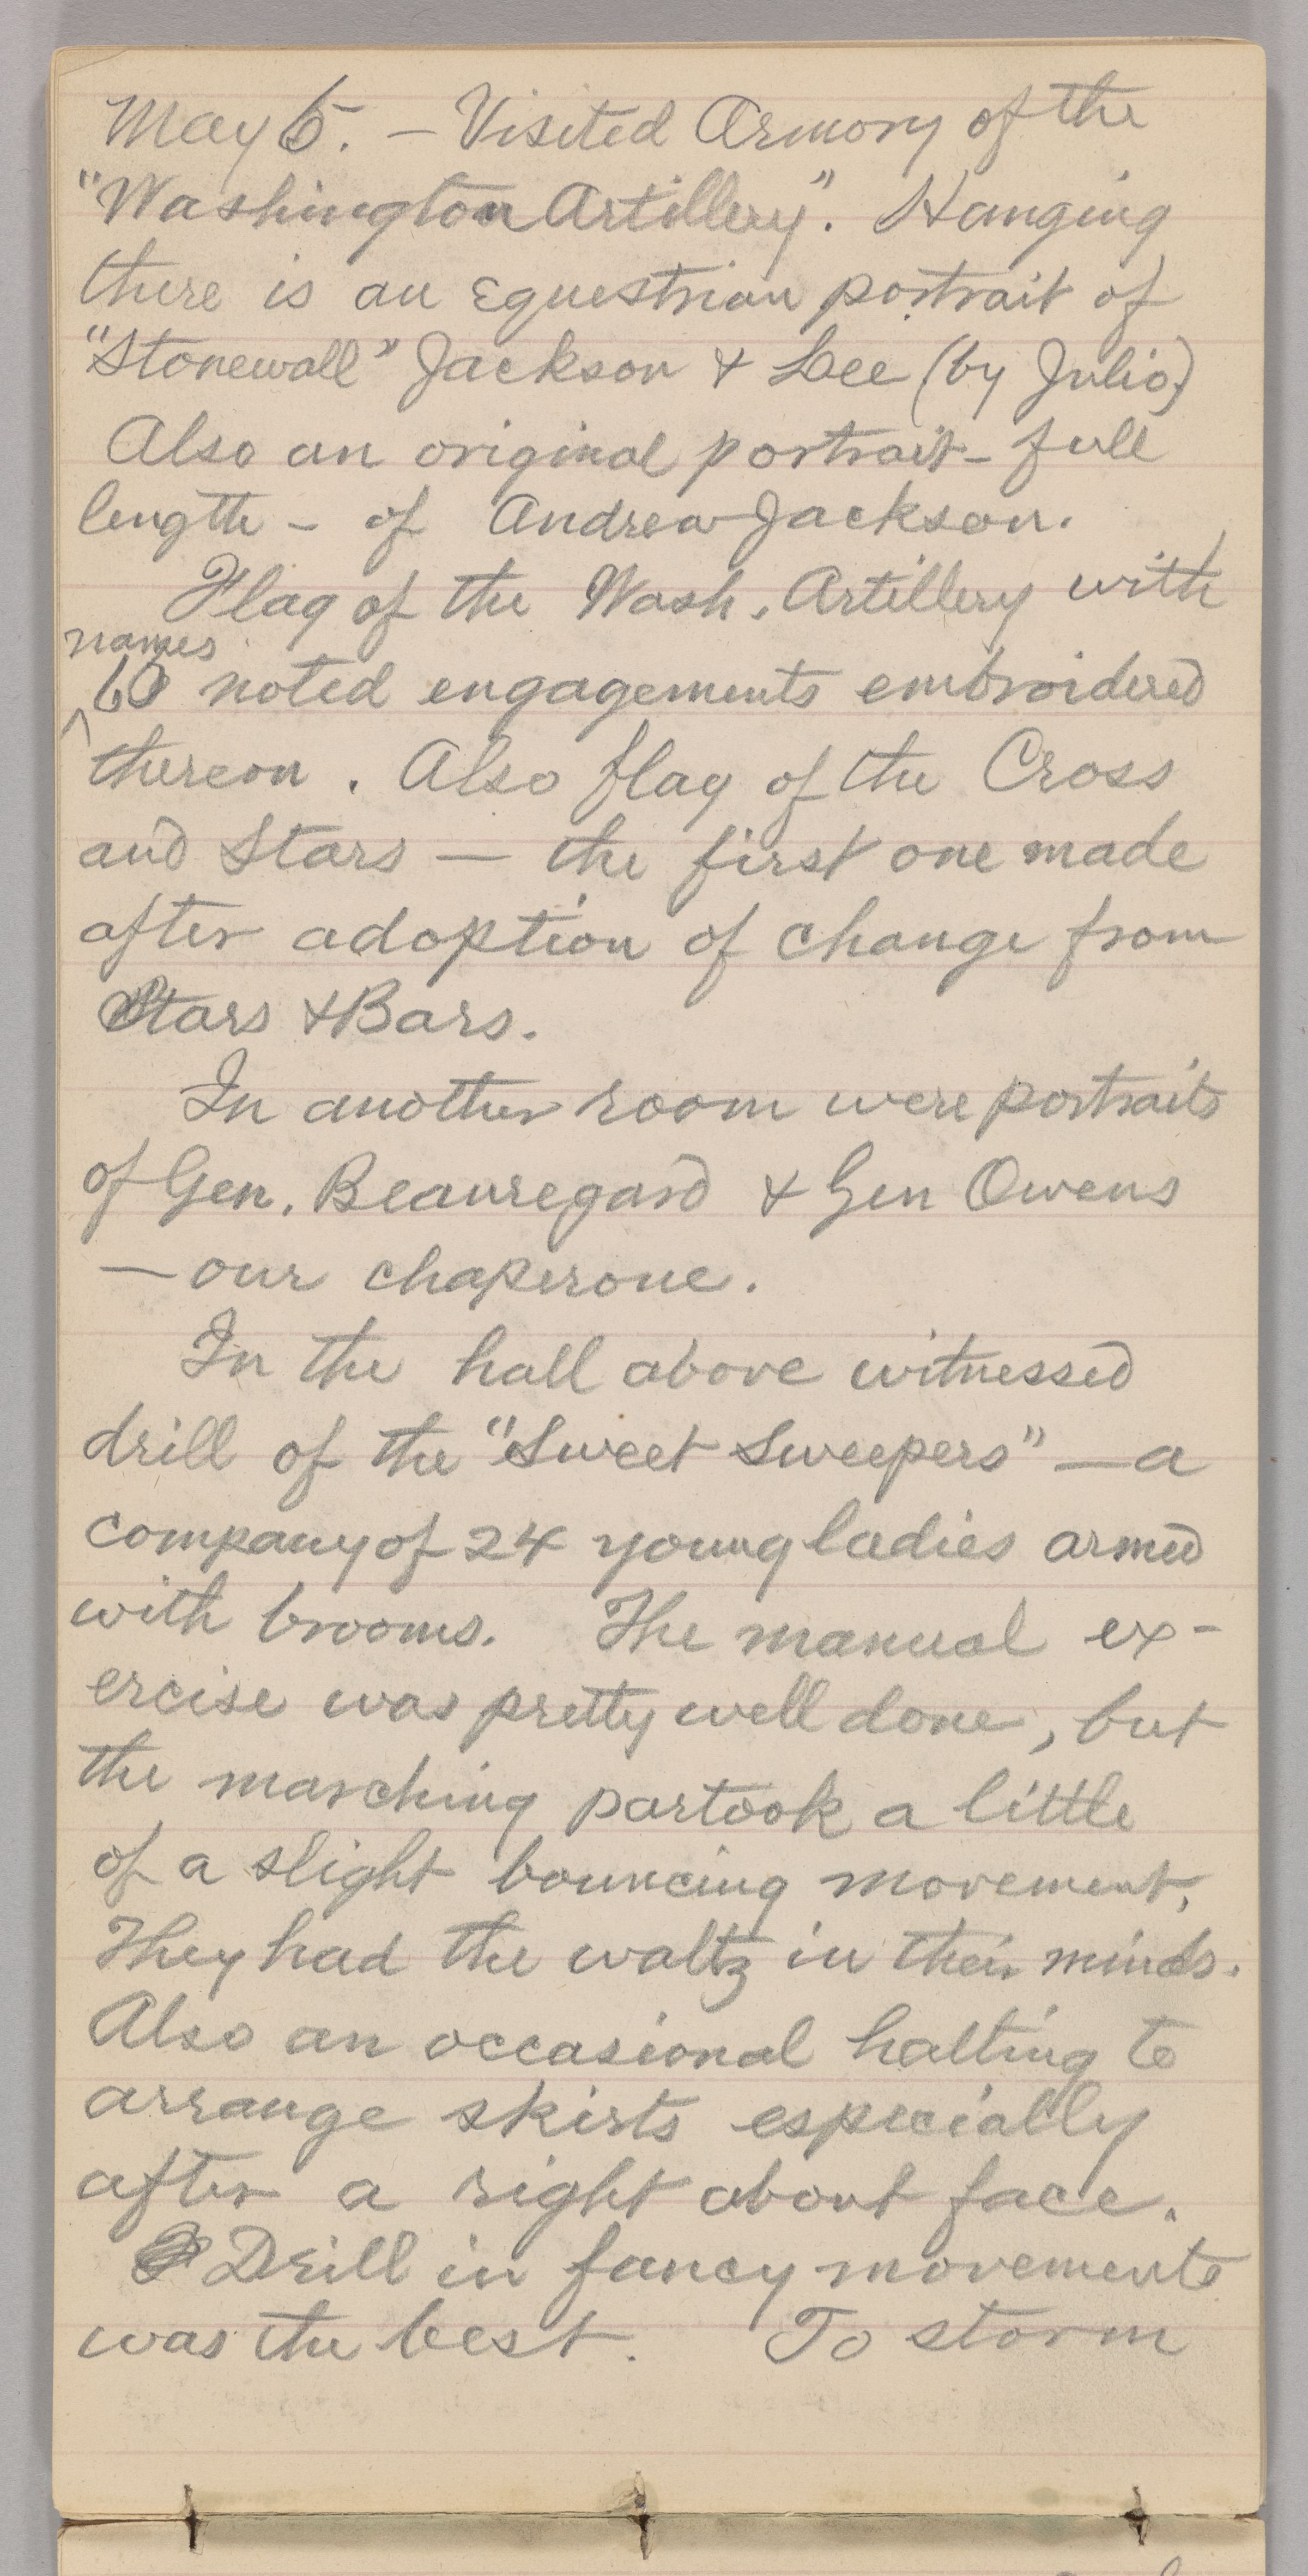 May 5. – Visited Armory of the
"Washington Artillery". Hanging
there is an Equestrian portrait of
"Stonewall" Jackson & Lee (by Julio)
Also an original portrait – full
length – of Andrew Jackson.
Flag of the Wash. Artillery with
names
60 noted engagements embroidered
thereon. Also flag of the Cross
and Stars — the first one made
after adoption of change from
Stars & Bars.
In another room were portraits
of Gen. Beauregard & Gen Owens
— our chaperone.
In the hall above witnessed
drill of the "Sweet Sweepers" — a
company of 24 young ladies armed
with brooms. The manual ex-
ercise was pretty well done, but
the marching partook a little
of a slight bouncing movement.
They had the waltz in their minds.
Also an occasional halting to
arrange skirts especially
after a right about face.
Drill in fancy movements
was the best. To storm